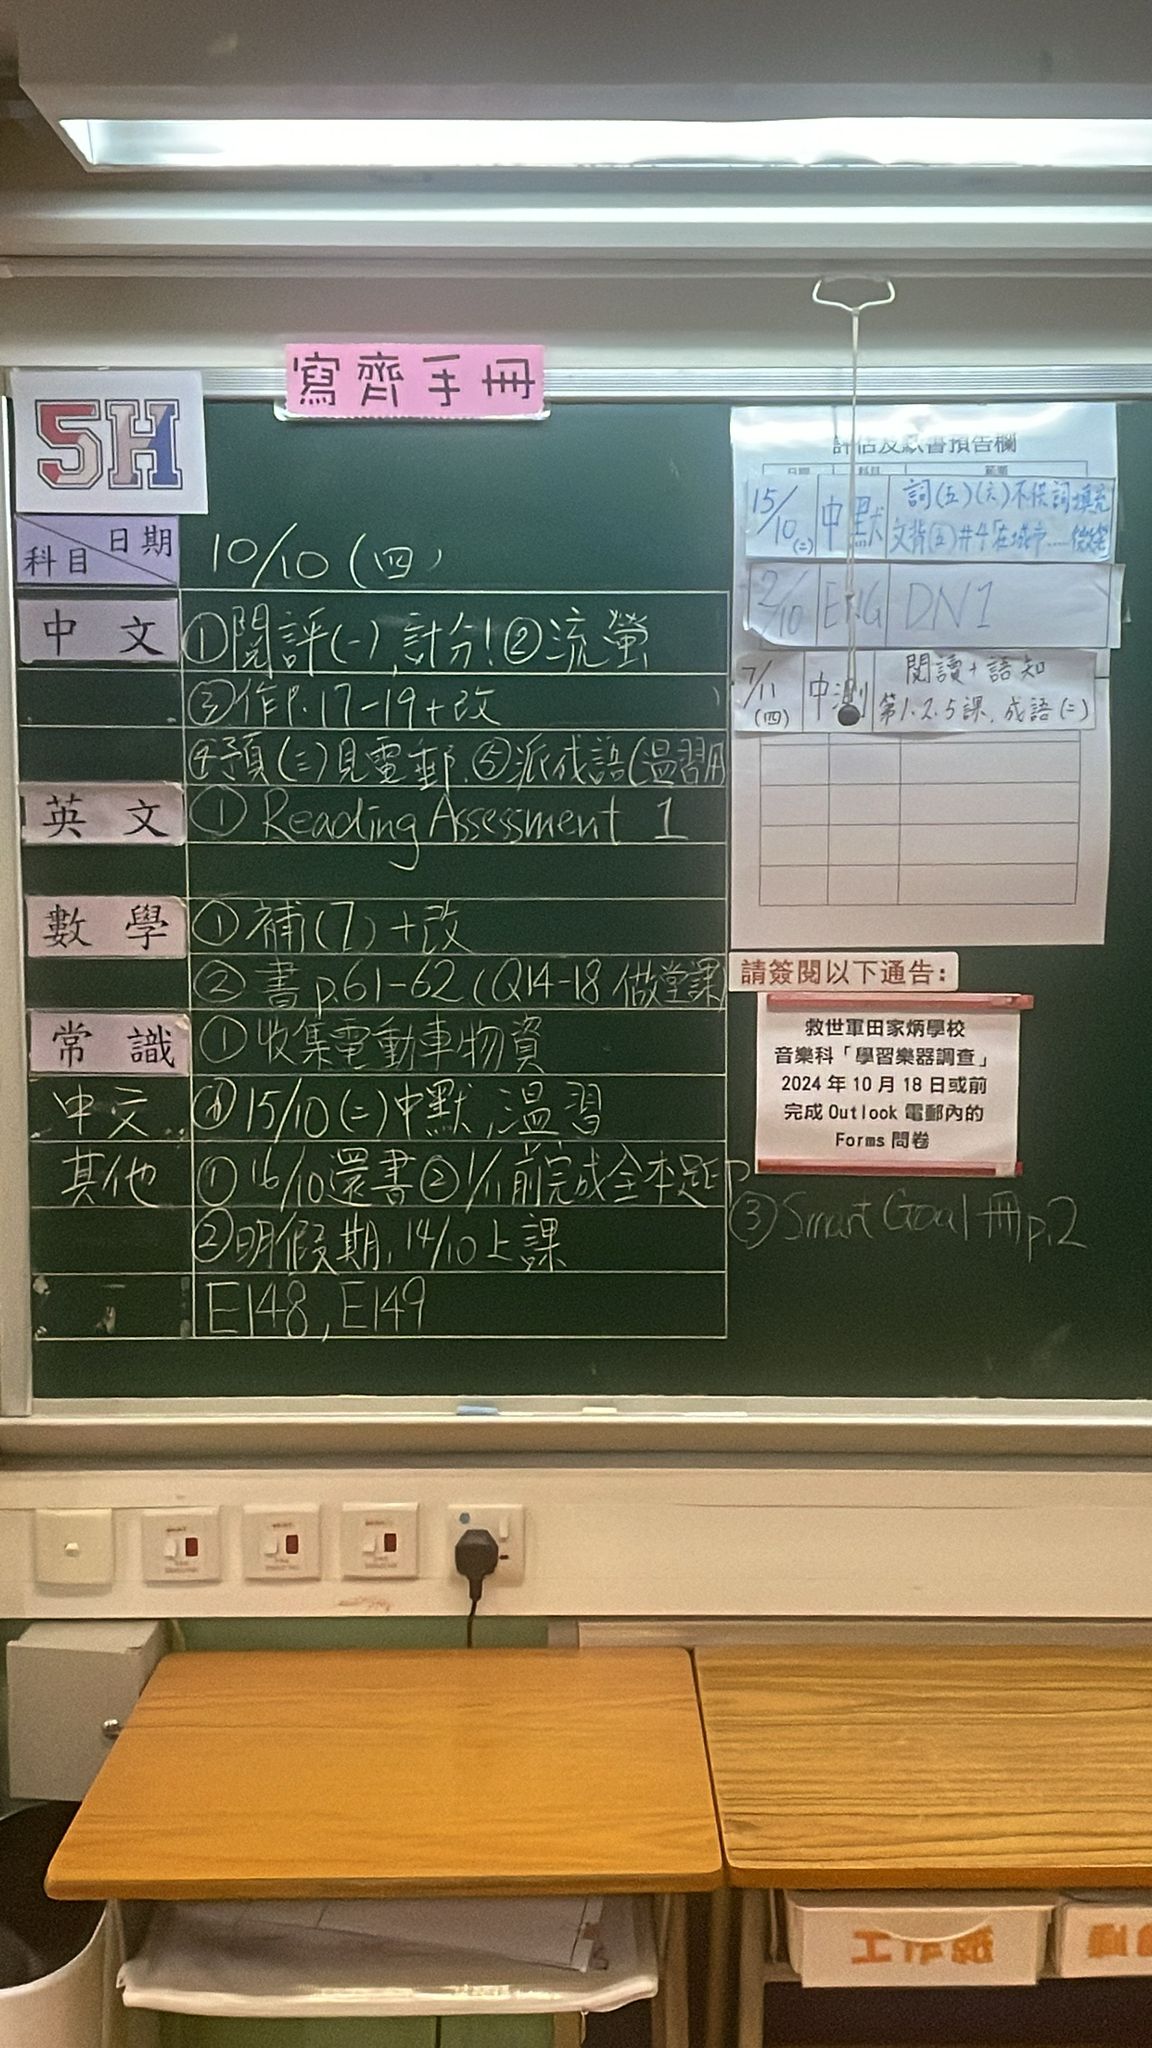 寫齊手冊
5H
科目 日期
10/10 (四)
中文 ①閱評(一)計分!②流螢
③作P.17-19+改
④預(三)見電郵.⑤派成語(溫習用
英文 ① Reading Assessment 1
數學 ①補(7)+改
② 書p.61-62 (Q14-18 做堂課)
常識 ①收集電動車物資
中文 ① 15/10(二)中默,溫習
其他 ①16/10還書②1/11前完成全本
③ Smart Goal 冊p.2
②明假期,14/10上課
E148, E149
評估及默書預告欄
日期 科目 範圍
15/10(二) 中默 詞(五)(六)不供詞填充
文背(五)#4「在城市……微笑
/10 ENG DN1
7/11(四) 中測 閱讀+語知
第1.2.5課,成語(二)
請簽閱以下通告:
救世軍田家炳學校
音樂科「學習樂器調查」
2024 年 10 月 18 日或前
完成 Outlook 電郵內的
Forms 問卷